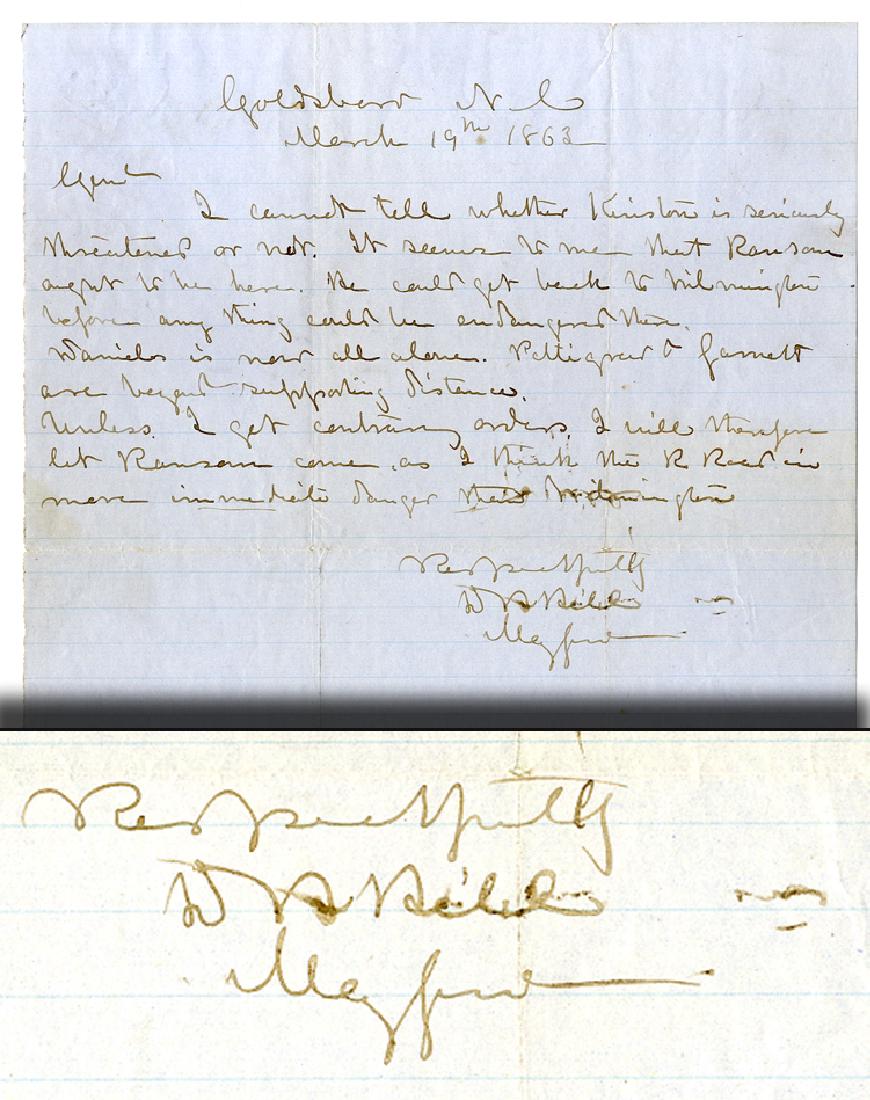 Goldsboro N C
March 19th 1863
Genl
I cannot tell whether Kinston is seriously
threatened or not. It seems to me that Ransom
ought to be here. He could get back to Wilmington
before any thing could be endangered there.
Daniels is now all alone. Pettigrew & Garnett
are beyond supporting distance.
Unless I get contrary orders, I will therefore
let Ransom come, as I think the R Road in
more immediate danger than Wilmington
Respectfully
D H Hill
Maj Genl
Respectfully
D H Hill
Maj Genl